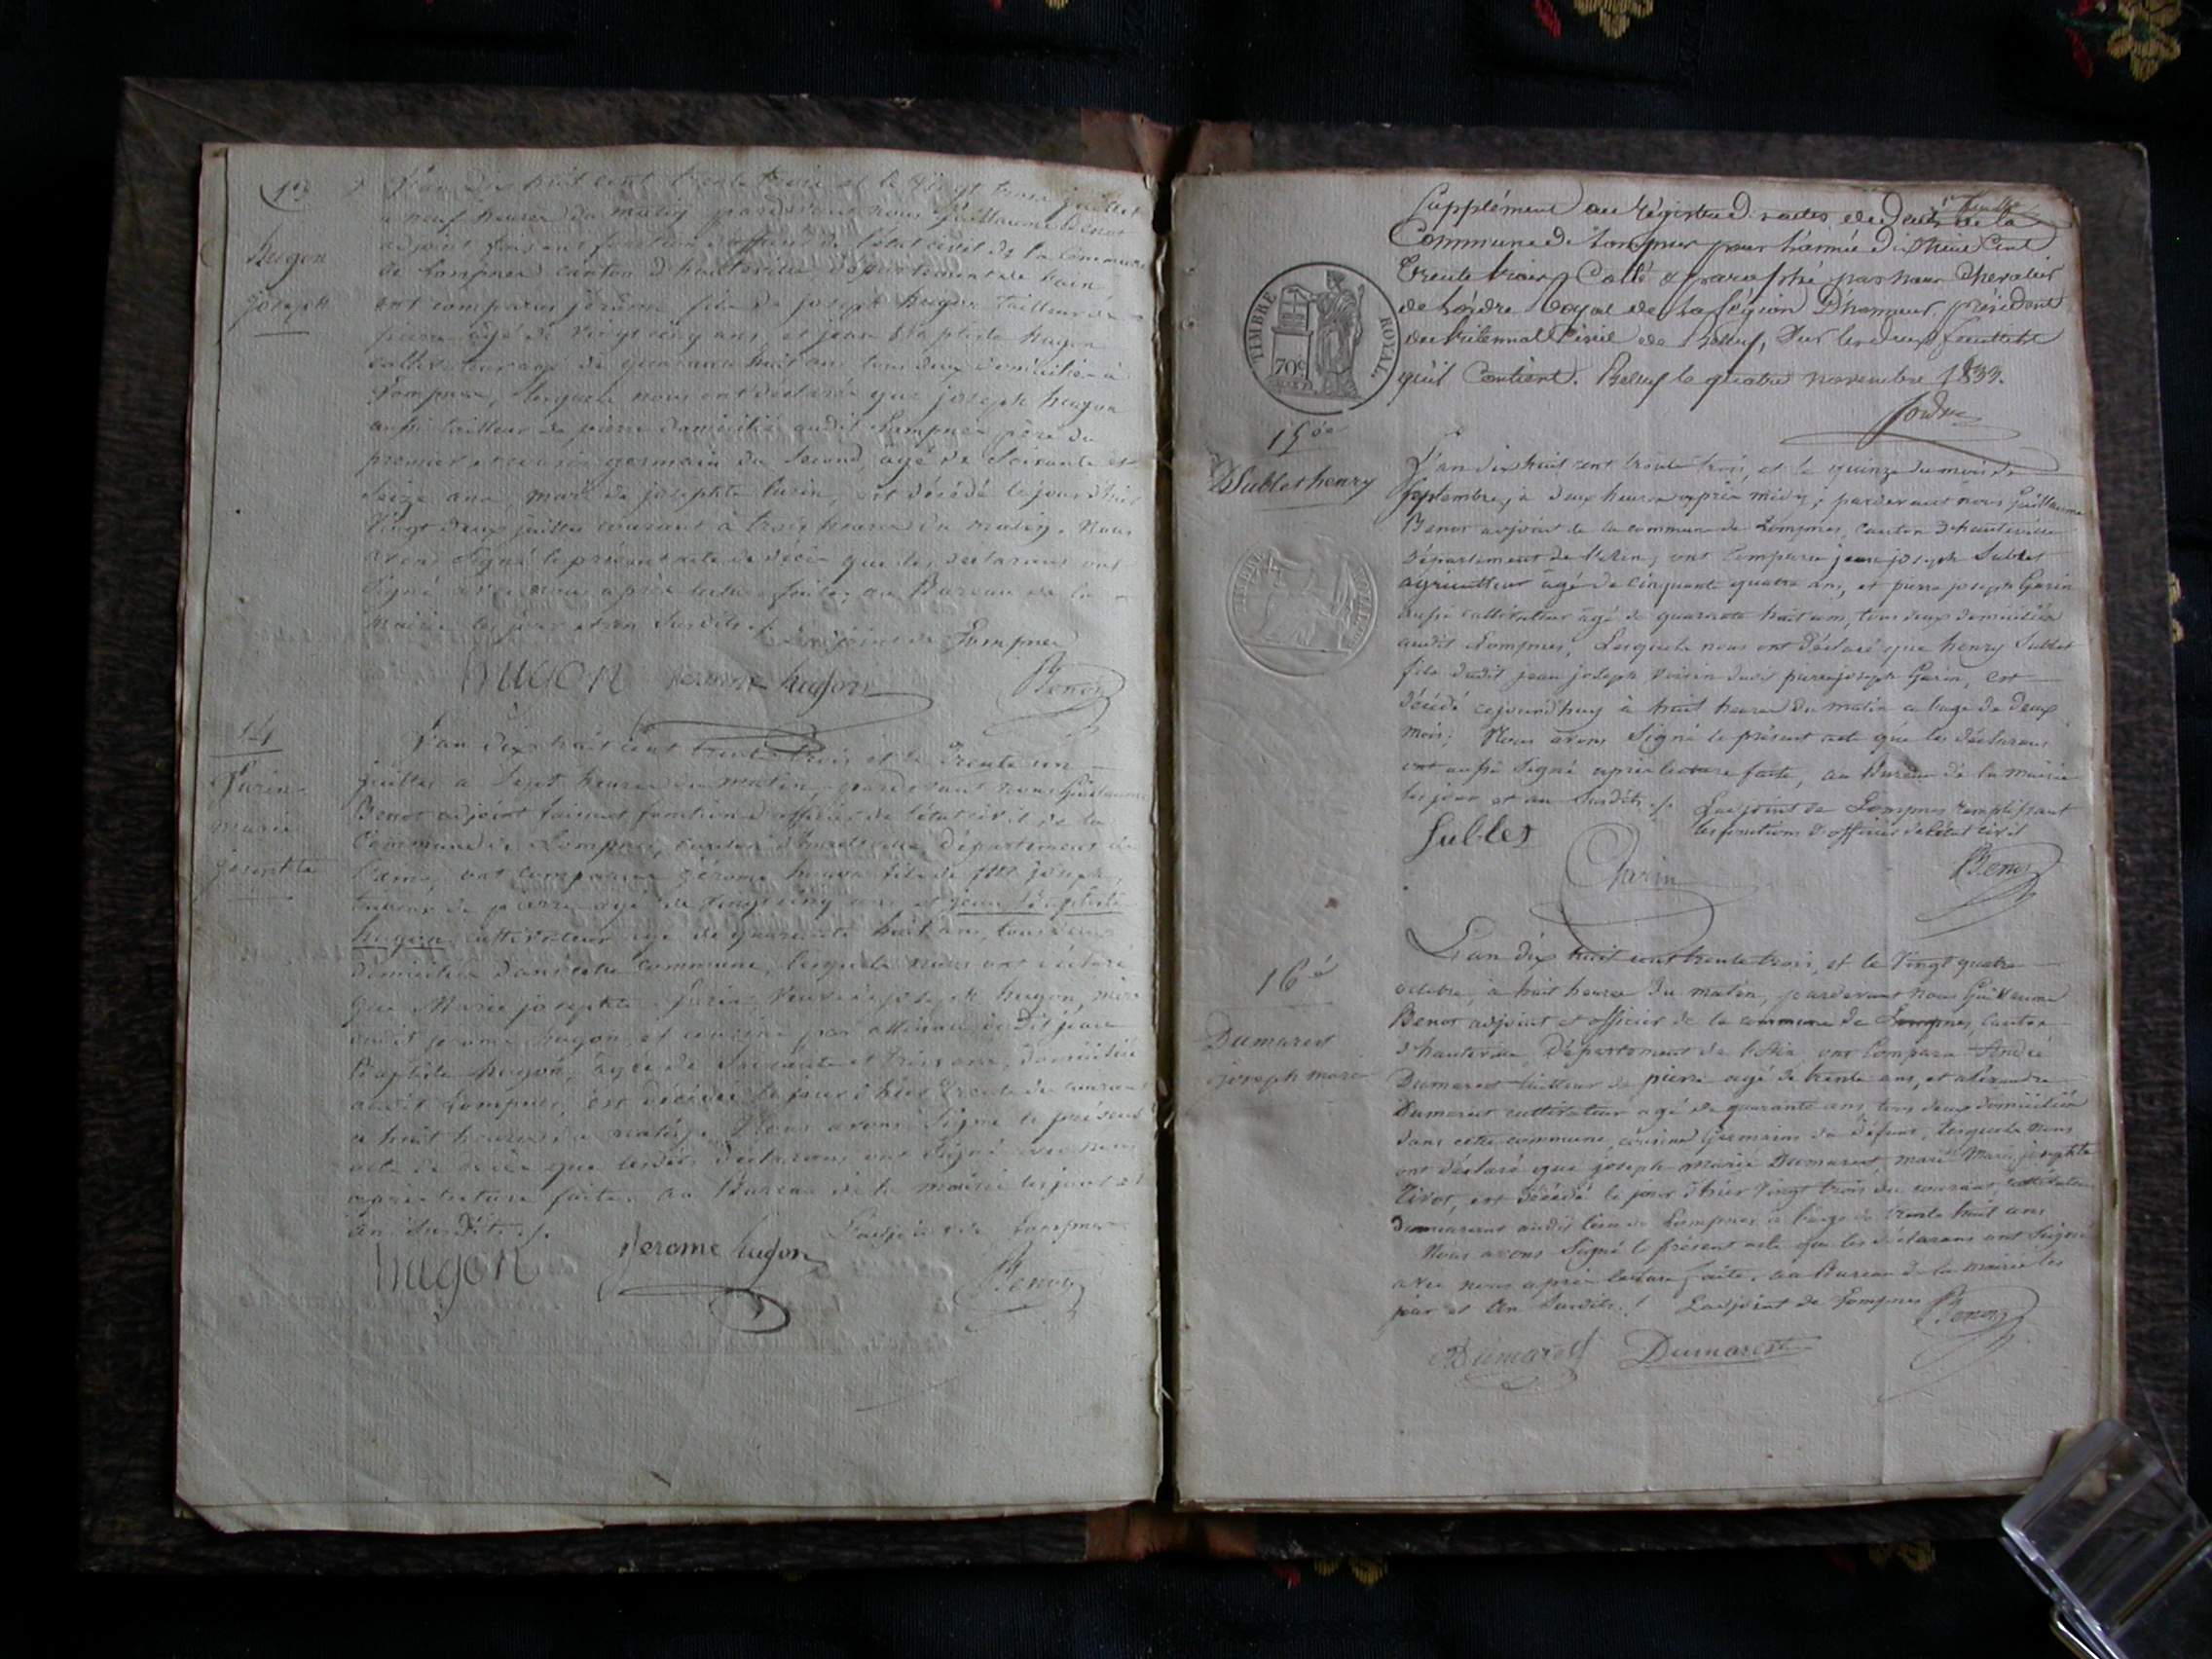 13
hugon
joseph
L'an dix huit cent trente trois et le Vingt trois juillet
a neuf heures du matin pardevant nous Guillaume Benot
adjoint faisant fonction d'officier de l'état civil de la Commune
de Lompnes canton d'hauteville, département de l'ain
ont comparus jérôme fils de joseph hugon tailleur de
pierre agé de Vingt cinq ans, et jean Baptiste hugon
cultivateur agé de quarante huit ans tous deux domiciliés à
Lompnes, lesquels nous ont déclarés que joseph hugon
aussi tailleur de pierre domicilié audit Lompnes père du
premier et cousin germain du Second, agé de Soixante et
Seize ans mari de josephte Jurin, est décédé le jour d'hier
Vingt deux juillet courant à trois heures du matin. Nous
avons Signé le présent acte de décès que les déclarans ont
Signé avec nous après lecture faite, au Bureau de la
mairie les jour et an Susdits ./. L'adjoint de Lompnes
hugon jerome hugon Benot
14
Jurin
marie
josephte
L'an dix huit cent trente trois et le Trente un
juillet a Sept heures du matin, pardevant nous Guillaume
Benot adjoint faisant fonction d'officier de l'état civil de la
Commune de Lompnes, canton d'hauteville, département de
l'ain, ont comparus jérome hugon fils de joseph,
tailleur de pierre agé de Vingt cinq ans et jean Baptiste
hugon cultivateur agé de quarante huit ans, tous deux
domiciliés dans cette commune, lesquels nous ont déclaré
que Marie josephte Jurin, Veuve de joseph hugon, mère
dudit jerome hugon, et cousine par alliance dudit jean
Baptiste hugon, agée de Soixante et trois ans, domiciliée
audit Lompnes, est décédée le jour d'hier trente du courant
a huit heures du matin. Nous avons Signé le présent
acte de décès que lesdits déclarans ont Signé avec nous
après lecture faite. au Bureau de la mairie les jour et
an Susdits ./. L'adjoint de Lompnes
hugon Jerome hugon Benot
Supplément au Régistre des actes de décès de la
Commune de Lompnes pour l'année dix huit Cent
Trente trois, Coté & paraphé par nous Chevalier
de l'ordre Royal de la Légion D'honneur, président
du tribunal Civil de Belley, Sur les deux feuillets
qu'il Contient. Belley le quatre novembre 1833.
TIMBRE ROYAL
70c
15ée
Sublet henry
L'an dix huit cent trente trois, et le quinze du mois de
Septembre, à deux heures après midi; pardevant nous Guillaume
Benot adjoint de la commune de Lompnes, Canton d'hauteville
département de l'Ain, ont Comparu jean joseph Sublet
agriculteur agé de Cinquante quatre ans, et pierre joseph Garin
aussi cultivateur agé de quarante huit ans, tous deux domiciliés
audit Lompnes, Lesquels nous ont déclaré que henry Sublet
fils dudit jean joseph Voisin dudit pierre joseph Garin, est
décédé cejourd'huy à huit heures du matin a l'age de deux
mois; Nous avons Signé le présent acte que les déclarans
ont aussi Signé après lecture faite, au Bureau de la mairie
les jour et an Susdits ./. L'adjoint de Lompnes remplissant
les fonctions d'officier de l'état civil
Sublet
Garin Benot
16é
Dumarest
joseph marie
L'an dix huit cent trente trois, et le Vingt quatre
octobre, à huit heures du matin, pardevant nous Guillaume
Benot adjoint et officier de la commune de Lompnes, Canton
d'hauteville, Département de l'Ain, ont Comparu André
Dumarest tailleur de pierre agé de trente ans, et aléxandre
Dumarest cultivateur agé de quarante ans, tous deux domiciliés
dans cette commune, cousins Germains du défunt, lesquels nous
ont déclaré que joseph marie Dumarest, mari Marie josephte
Tivot, est décédé le jour d'hier Vingt trois du courant, cultivateur
demeurant audit lieu de Lompnes a l'age de trente huit ans
Nous avons Signé le présent acte que les déclarans ont Signé
avec nous après lecture faite. au Bureau de la mairie les
jour et an Susdits ./. L'adjoint de Lompnes Benot
Dumarest Dumarest